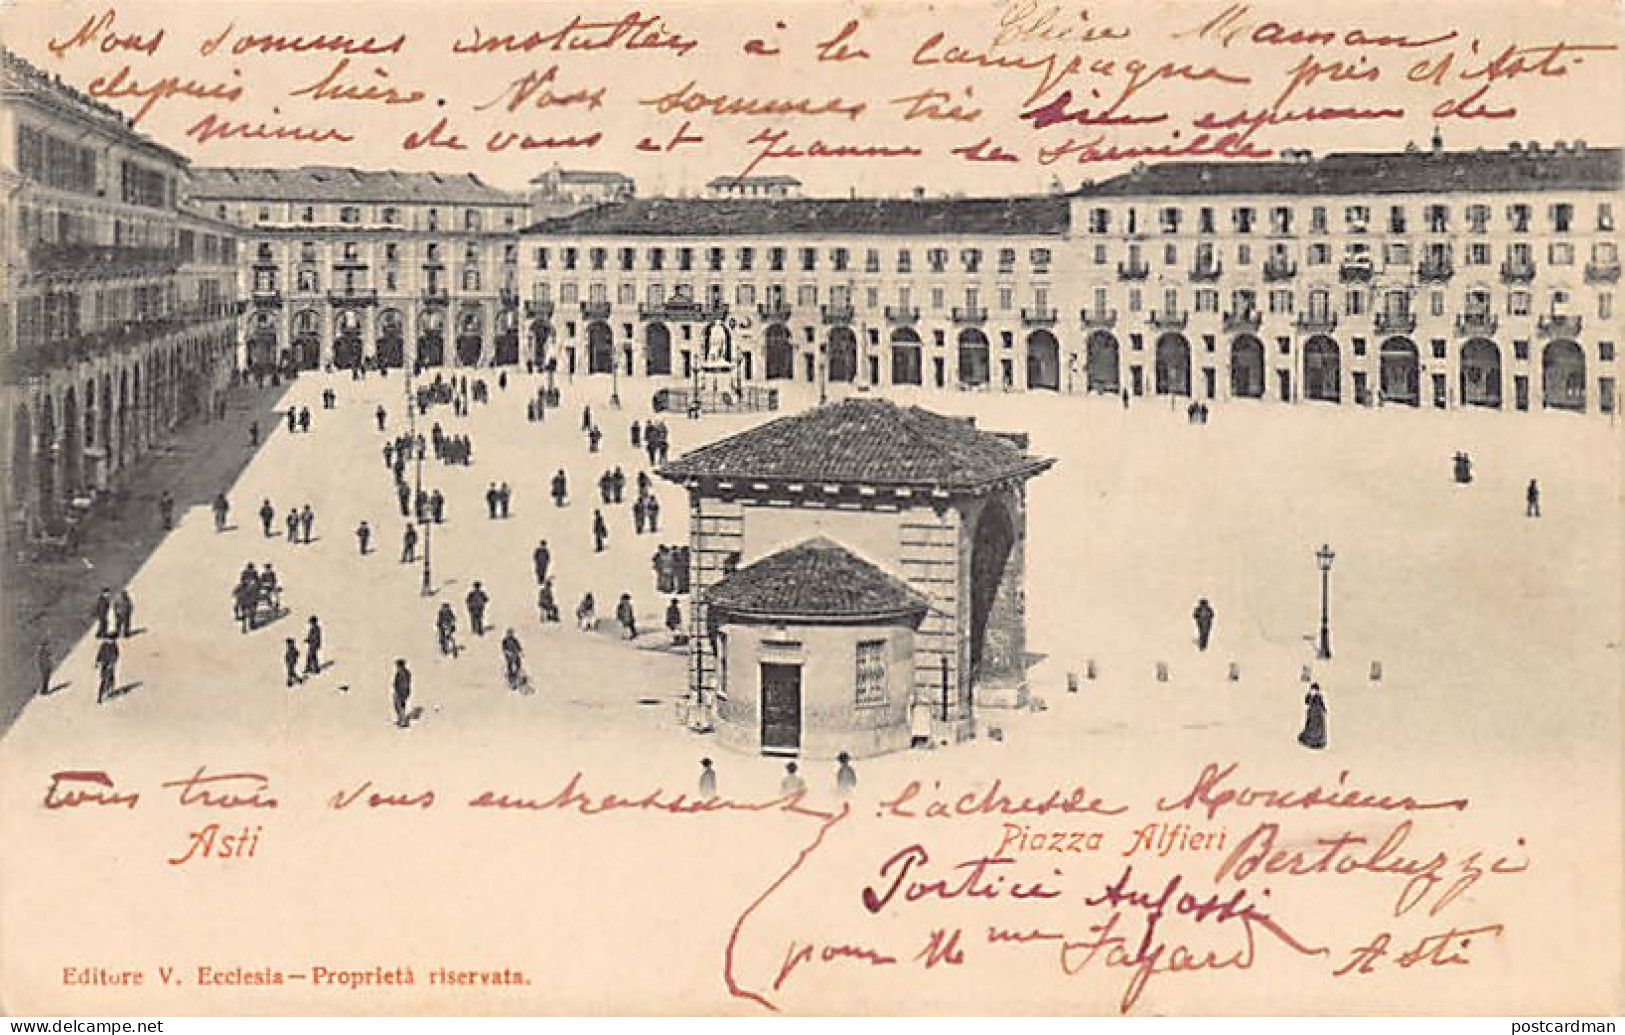 Chère Maman.
Nous sommes installés à la campagne près d'Asti
depuis hière. Nous sommes très bien esperons de
même de vous et Jeanne de
Tous trois vous embrassant l'adresse Monsieur
Asti Piazza Alfieri Bertoluzzi
Portici Anfossi
pour Mme Fayard Asti
Editore V. Ecclesia — Proprietà riservata.
postcardman